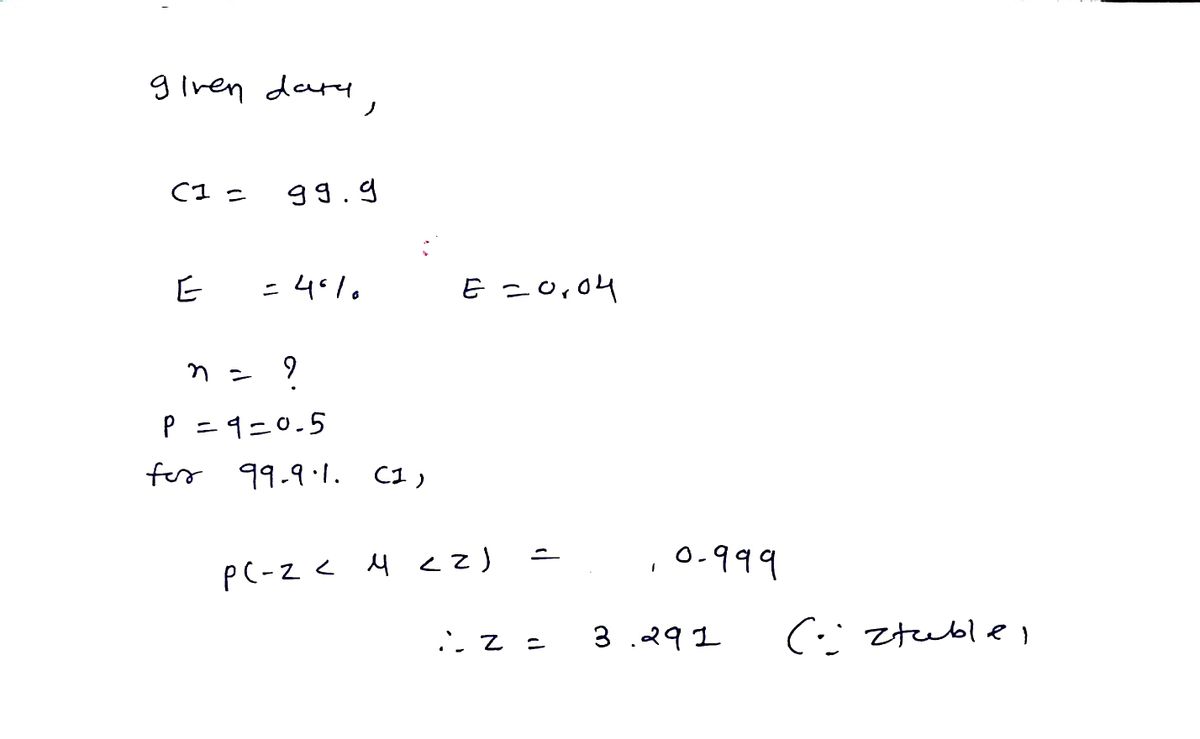 given data,
CI = 99.9
E = 4% E = 0.04
n = ?
P = q = 0.5
for 99.9%. CI,
P(-z < μ < z) = 0.999
∴ z = 3.291 (∵ z table)